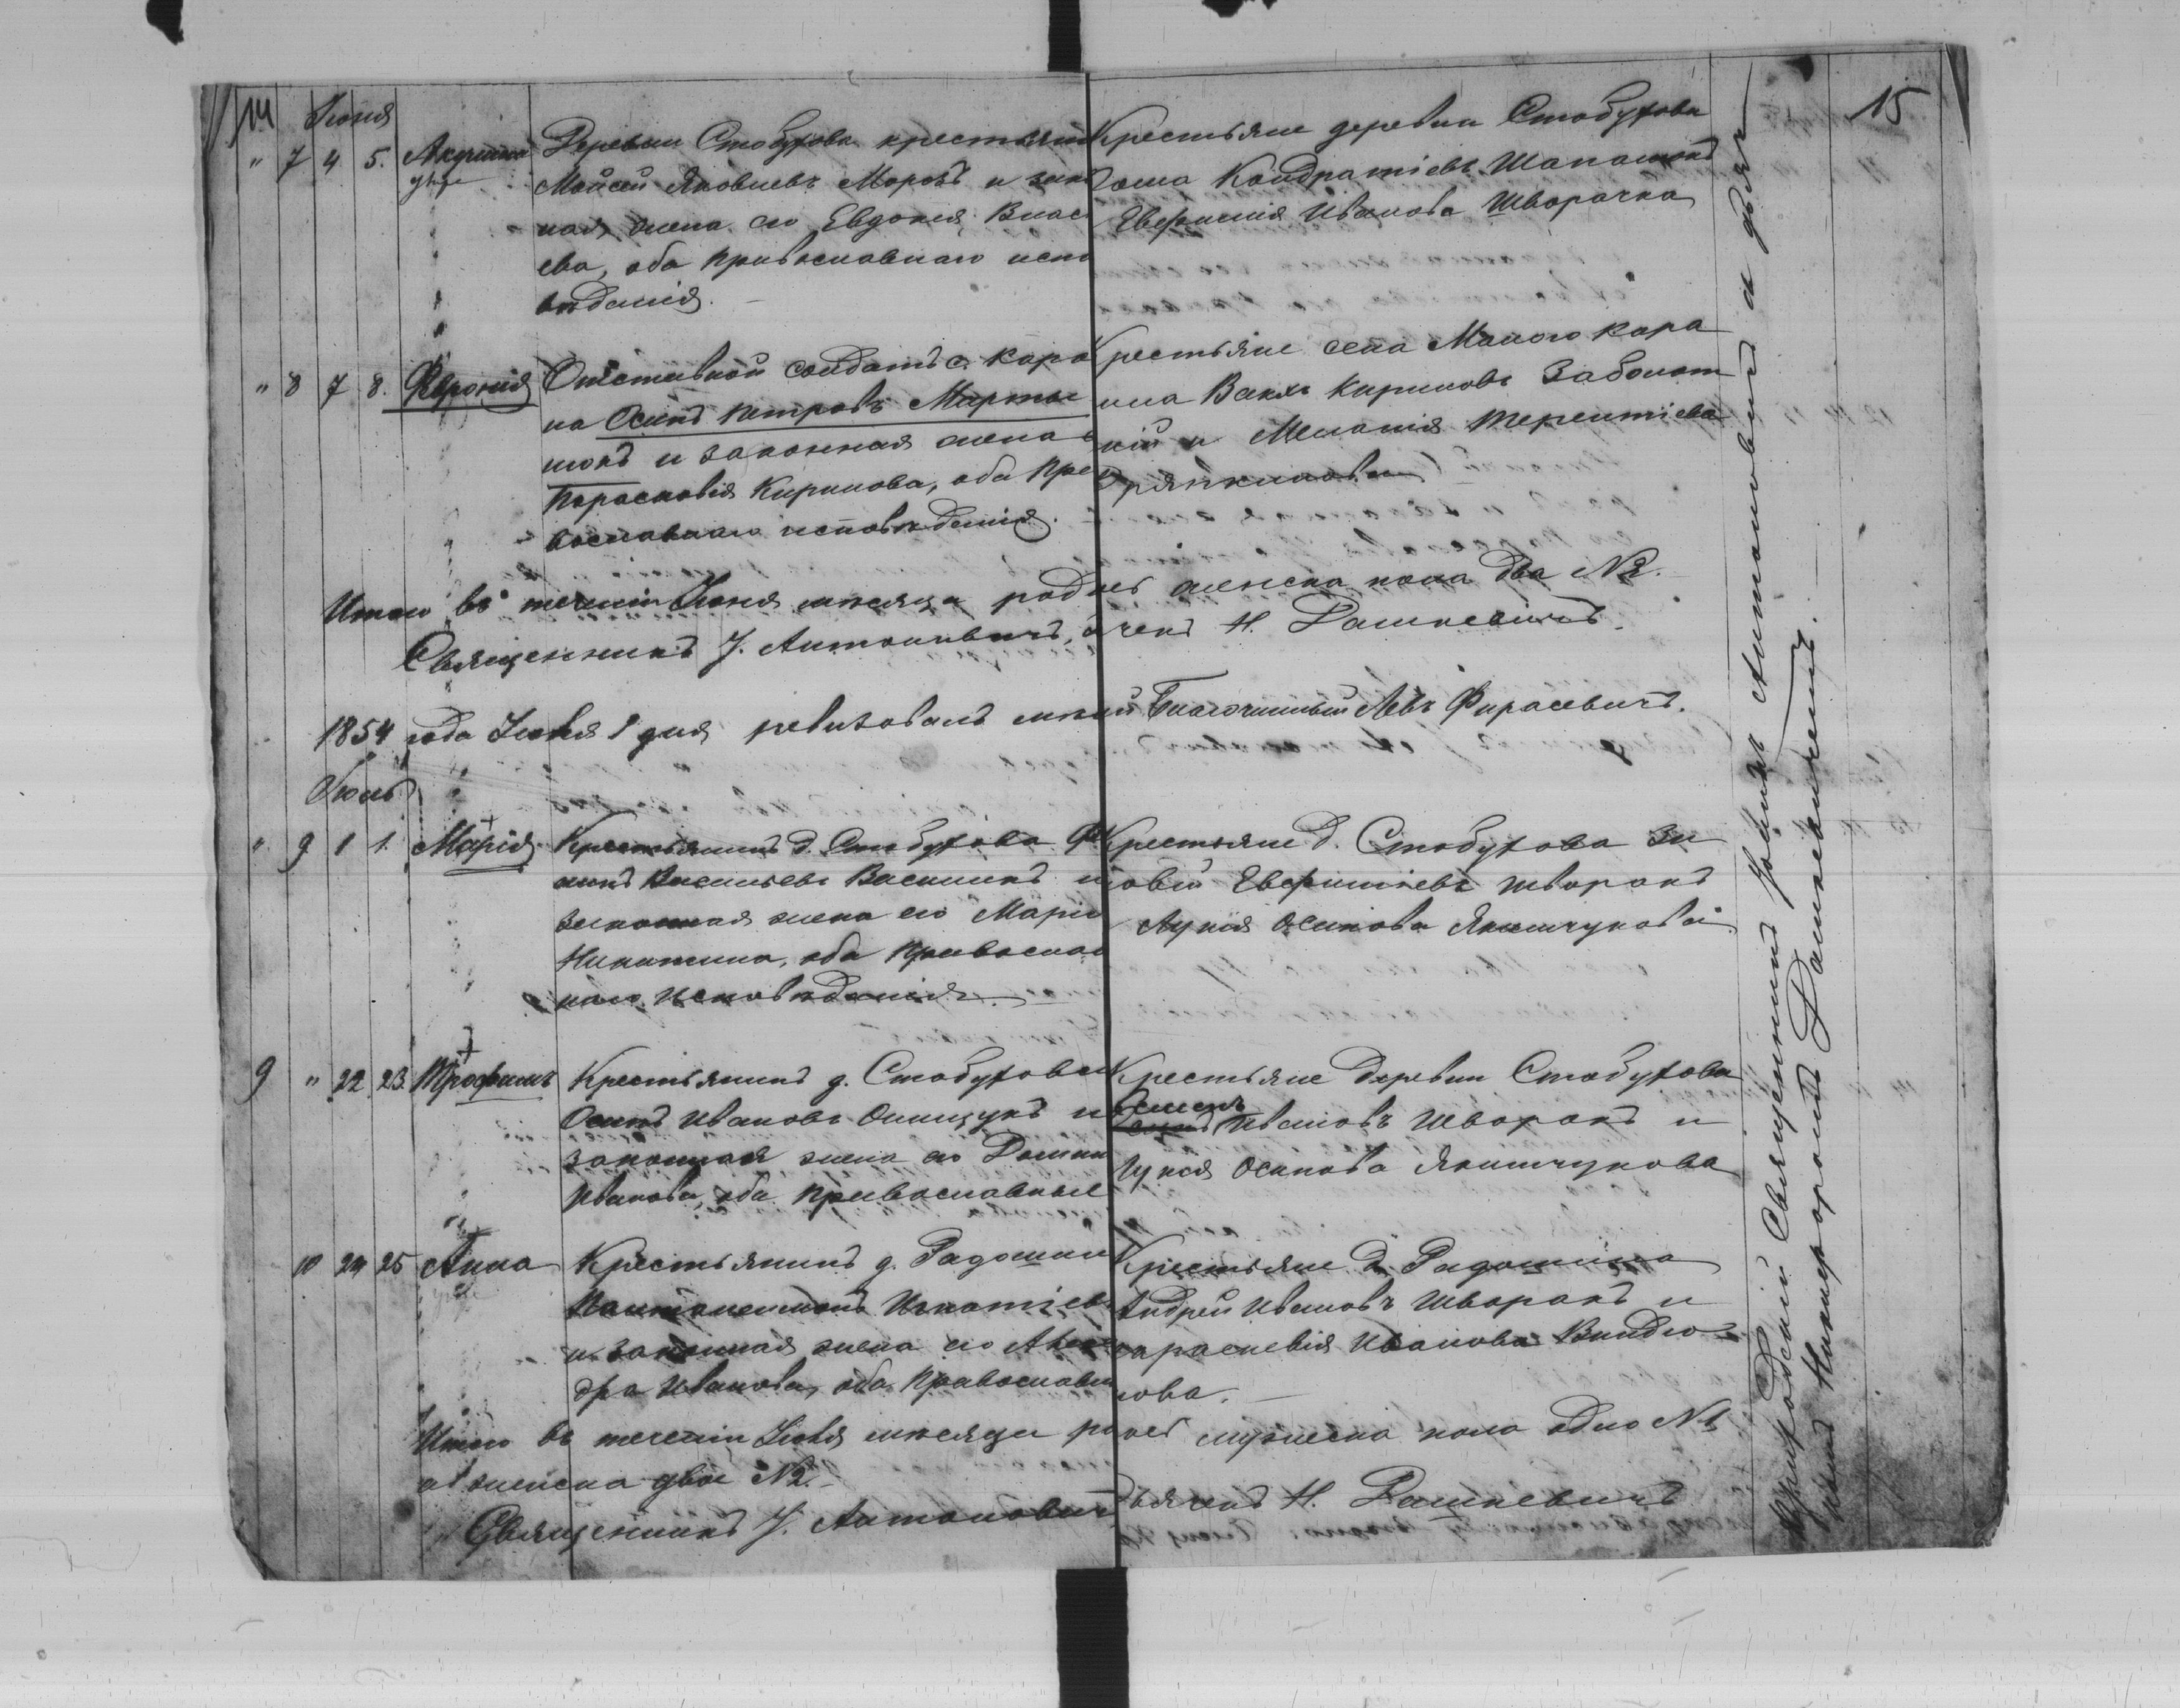 14
15
Іюня
" 7 4 5. Акулина
Деревни Стобухова крестьянинъ
Мойсей Яковлевъ Морозъ и закон
ная жена его Евдокия Влась
ева, оба православнаго испо
вѣданія.
Крестьяне деревни Стобухова
Ѳома Кондратіевъ
Евфимія Иванова Шворачка
" 8 7 8. Февронія
Отставной солдатъ с. Кара
на Осипъ Петровъ Марты
нюкъ и законная жена
Парасковія Кирилова, оба пра
вославнаго исповѣданія.
Крестьяне села Малого Кара
Кириловъ Заболот
ній и Меланія Терентіева
Итого въ теченіи Іюня мѣсяца родилось женска пола два №2.
Священникъ І. Антоновичъ, дьячекъ Н. Дашкевичъ.
1854 года Іюля 1 дня ревизовалъ Благочинный Левъ Фирасевичъ.
Іюль
" 9 1 1. Марія
Крестьянинъ д. Стобухова
Васильевъ Василикъ и
законная жена его Марія
Никитина, оба православ
наго исповѣданія.
Крестьяне д. Стобухова Зи
новій Евфиміевъ Шворакъ
Лукія Осипова Якимчукова
9 " 22 23. Трофимъ
Крестьянинъ д. Стобухова
Осипъ Ивановъ Онищукъ и
законная жена его
Иванова, оба православные
Крестьяне деревни Стобухова
Семенъ
Осипъ Ивановъ Шворакъ и
Лукія Осипова Якимчукова
10 24 25 Анна
Крестьянинъ д. Радошин
Пантелеимонъ Игнатіев
и законная жена его Алексан
дра Иванова, оба православн
Крестьяне д. Радошина
Андрей Ивановъ Шворакъ и
Параскевія Иванова
нова.
Итого въ теченіи Іюля мѣсяца родилось мужеска пола одно №1
а женска двое №2.
Священникъ І. Антоновичъ Дьячекъ Н. Дашкевичъ
Приходскій Священникъ Іоаннъ Антоновичъ и дьяч
Никифоромъ Дашкевичемъ.